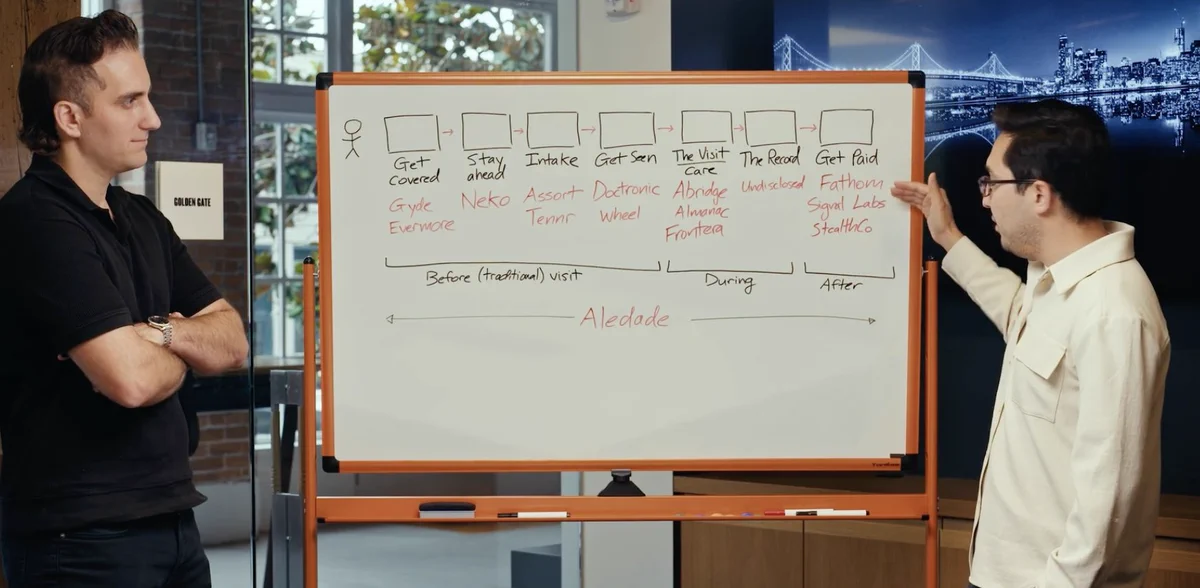 GOLDEN GATE
Get Covered
Gyde
Evermore
Stay ahead
Neko
Intake
Assort
Tennr
Get Seen
Doctronic
Wheel
The Visit
Care
Abridge
Almanac
Frontera
The Record
Undisclosed
Get Paid
Fathom
Signal Labs
StealthCo
Before (traditional) visit
During
After
Aledade